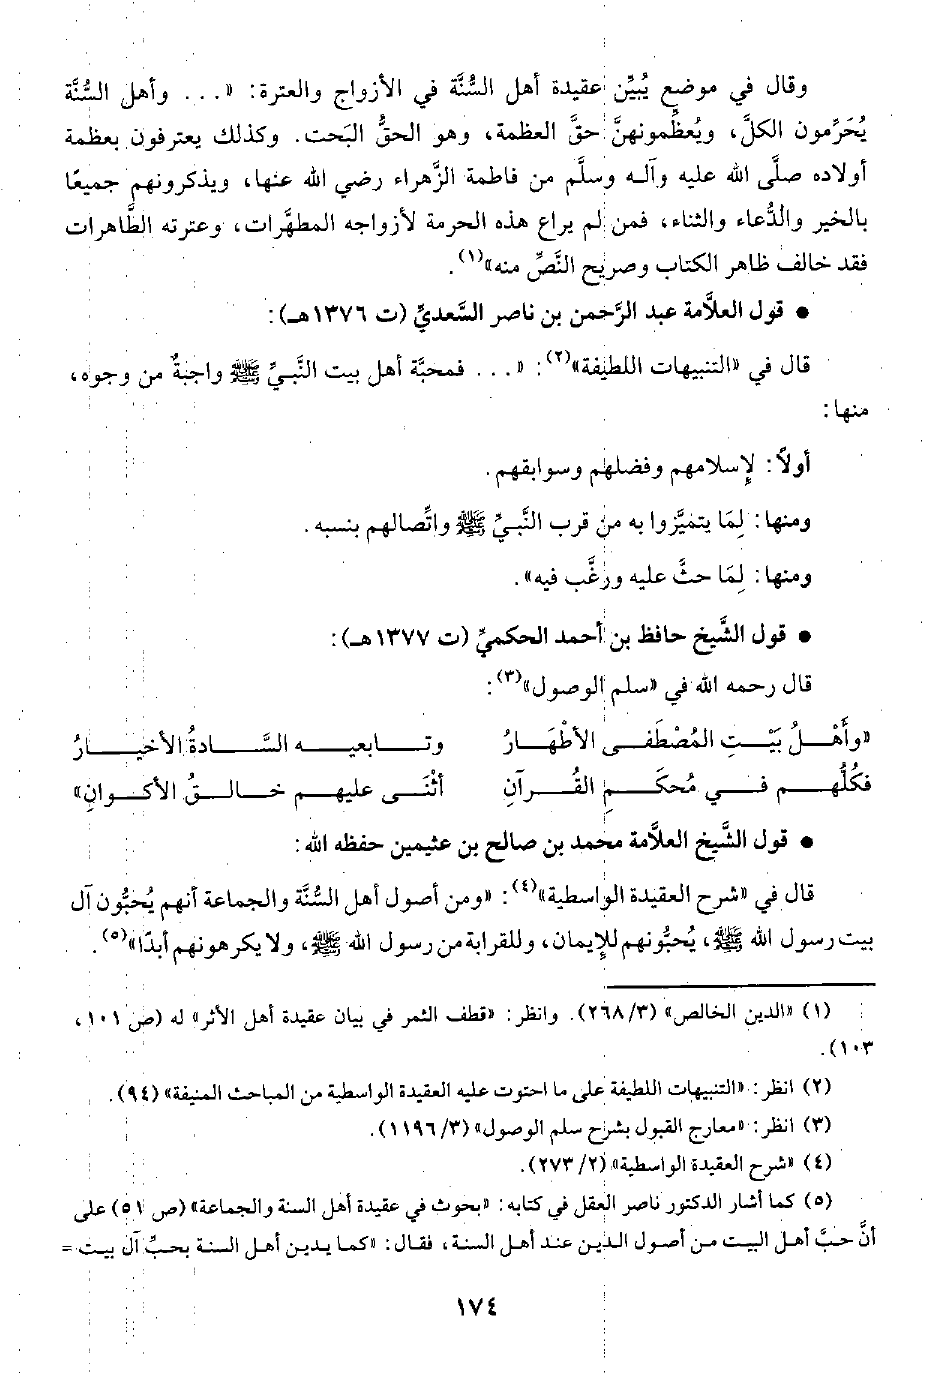 وقال في موضع يُبيِّن عقيدة أهل السُّنَّة في الأزواج والعترة: «... وأهل السُّنَّة
يُحَرِّمون الكلَّ، ويُعظِّمونهنَّ حقَّ العظمة، وهو الحقُّ البَحت. وكذلك يعترفون بعظمة
أولاده صلَّى الله عليه وآله وسلَّم من فاطمة الزَّهراء رضي الله عنها، ويذكرونهم جميعًا
بالخير والدُّعاء والثناء، فمن لم يراع هذه الحرمة لأزواجه المطهَّرات، وعترته الطَّاهرات
فقد خالف ظاهر الكتاب وصريح النَّصِّ منه»(١).
● قول العلاَّمة عبد الرَّحمن بن ناصر السَّعديِّ (ت ١٣٧٦هـ):
قال في «التنبيهات اللطيفة»(٢): «... فمحبَّة أهل بيت النَّبيِّ ﷺ واجبةٌ من وجوه،
منها:
أولاً: لإسلامهم وفضلهم وسوابقهم.
ومنها: لِمَا يتميَّزوا به من قرب النَّبيِّ ﷺ واتِّصالهم بنسبه.
ومنها: لِمَا حثَّ عليه ورغَّب فيه».
● قول الشَّيخ حافظ بن أحمد الحكميِّ (ت ١٣٧٧هـ):
قال رحمه الله في «سلم الوصول»(٣):
«وأَهْلُ بَيْتِ المُصْطَفى الأطْهَارُ وتابعيه السَّادةُ الأخيارُ
فكُلُّهم في مُحكَمِ القُرآنِ أثْنَى عليهم خالقُ الأكوانِ»
● قول الشَّيخ العلاَّمة محمد بن صالح بن عثيمين حفظه الله:
قال في «شرح العقيدة الواسطية»(٤): «ومن أصول أهل السُّنَّة والجماعة أنهم يُحبُّون آل
بيت رسول الله ﷺ، يُحبُّونهم للإيمان، وللقرابة من رسول الله ﷺ، ولا يكرهونهم أبدًا»(٥).
(١) «الدين الخالص» (٣/ ٢٦٨). وانظر: «قطف الثمر في بيان عقيدة أهل الأثر» له (ص ١٠١،
١٠٣).
(٢) انظر: «التنبيهات اللطيفة على ما احتوت عليه العقيدة الواسطية من المباحث المنيفة» (٩٤).
(٣) انظر: «معارج القبول بشرح سلم الوصول» (٣/ ١١٩٦).
(٤) «شرح العقيدة الواسطية» (٢/ ٢٧٣).
(٥) كما أشار الدكتور ناصر العقل في كتابه: «بحوث في عقيدة أهل السنة والجماعة» (ص ٥١) على
أنَّ حبَّ أهل البيت من أصول الدين عند أهل السنة، فقال: «كما يدين أهل السنة بحبِّ آل بيت =
١٧٤